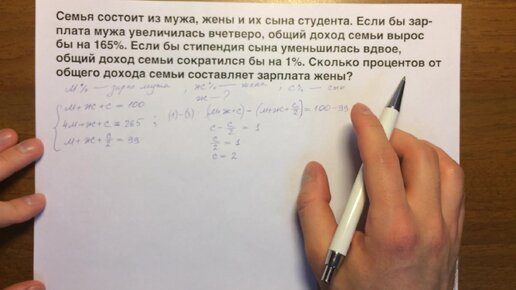 Семья состоит из мужа, жены и их сына студента. Если бы зар-
плата мужа увеличилась вчетверо, общий доход семьи вырос
бы на 165%. Если бы стипендия сына уменьшилась вдвое,
общий доход семьи сократился бы на 1%. Сколько процентов от
общего дохода семьи составляет зарплата жены?
М% — зарп мужа, Ж% — жена, С% — сын
Ж — ?
М+Ж+С = 100
4М+Ж+С = 265 ; (1)-(3) : (М+Ж+С) - (М+Ж+С/2) = 100-99
М+Ж+С/2 = 99
С - С/2 = 1
С/2 = 1
С = 2